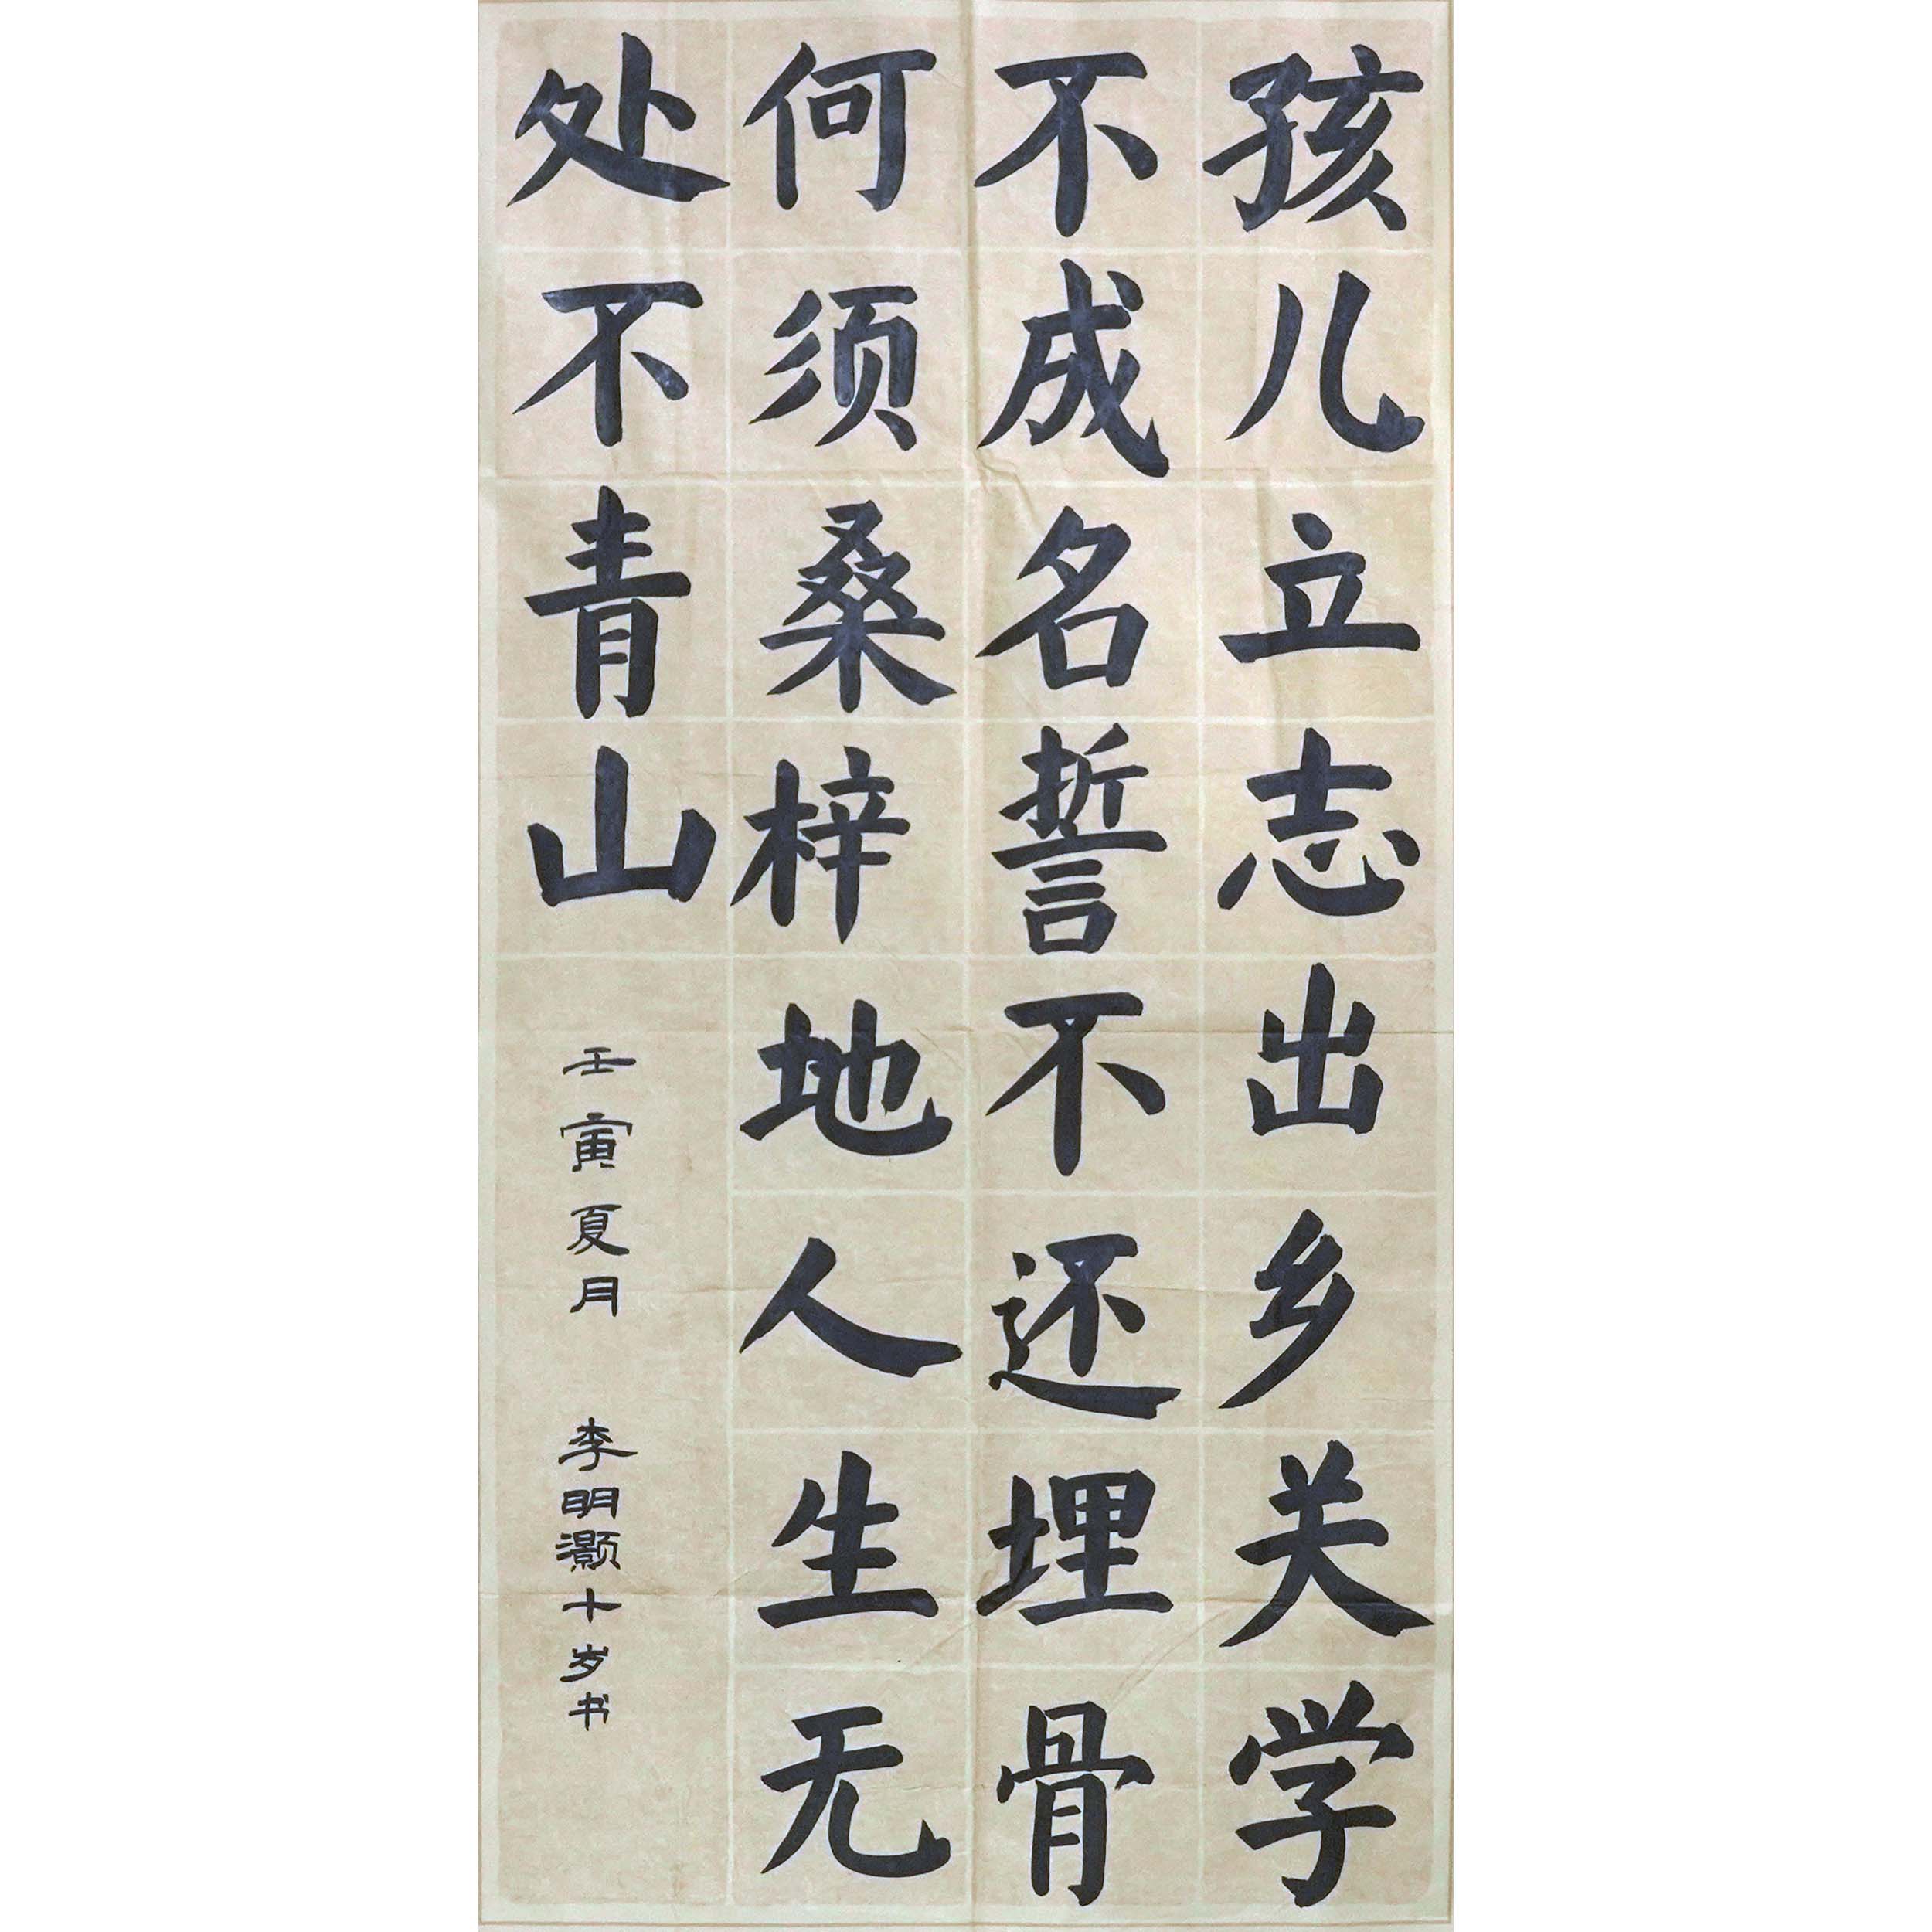 孩儿立志出乡关学
不成名誓不还埋骨
何须桑梓地人生无
处不青山
壬寅夏月 李明灏十岁书